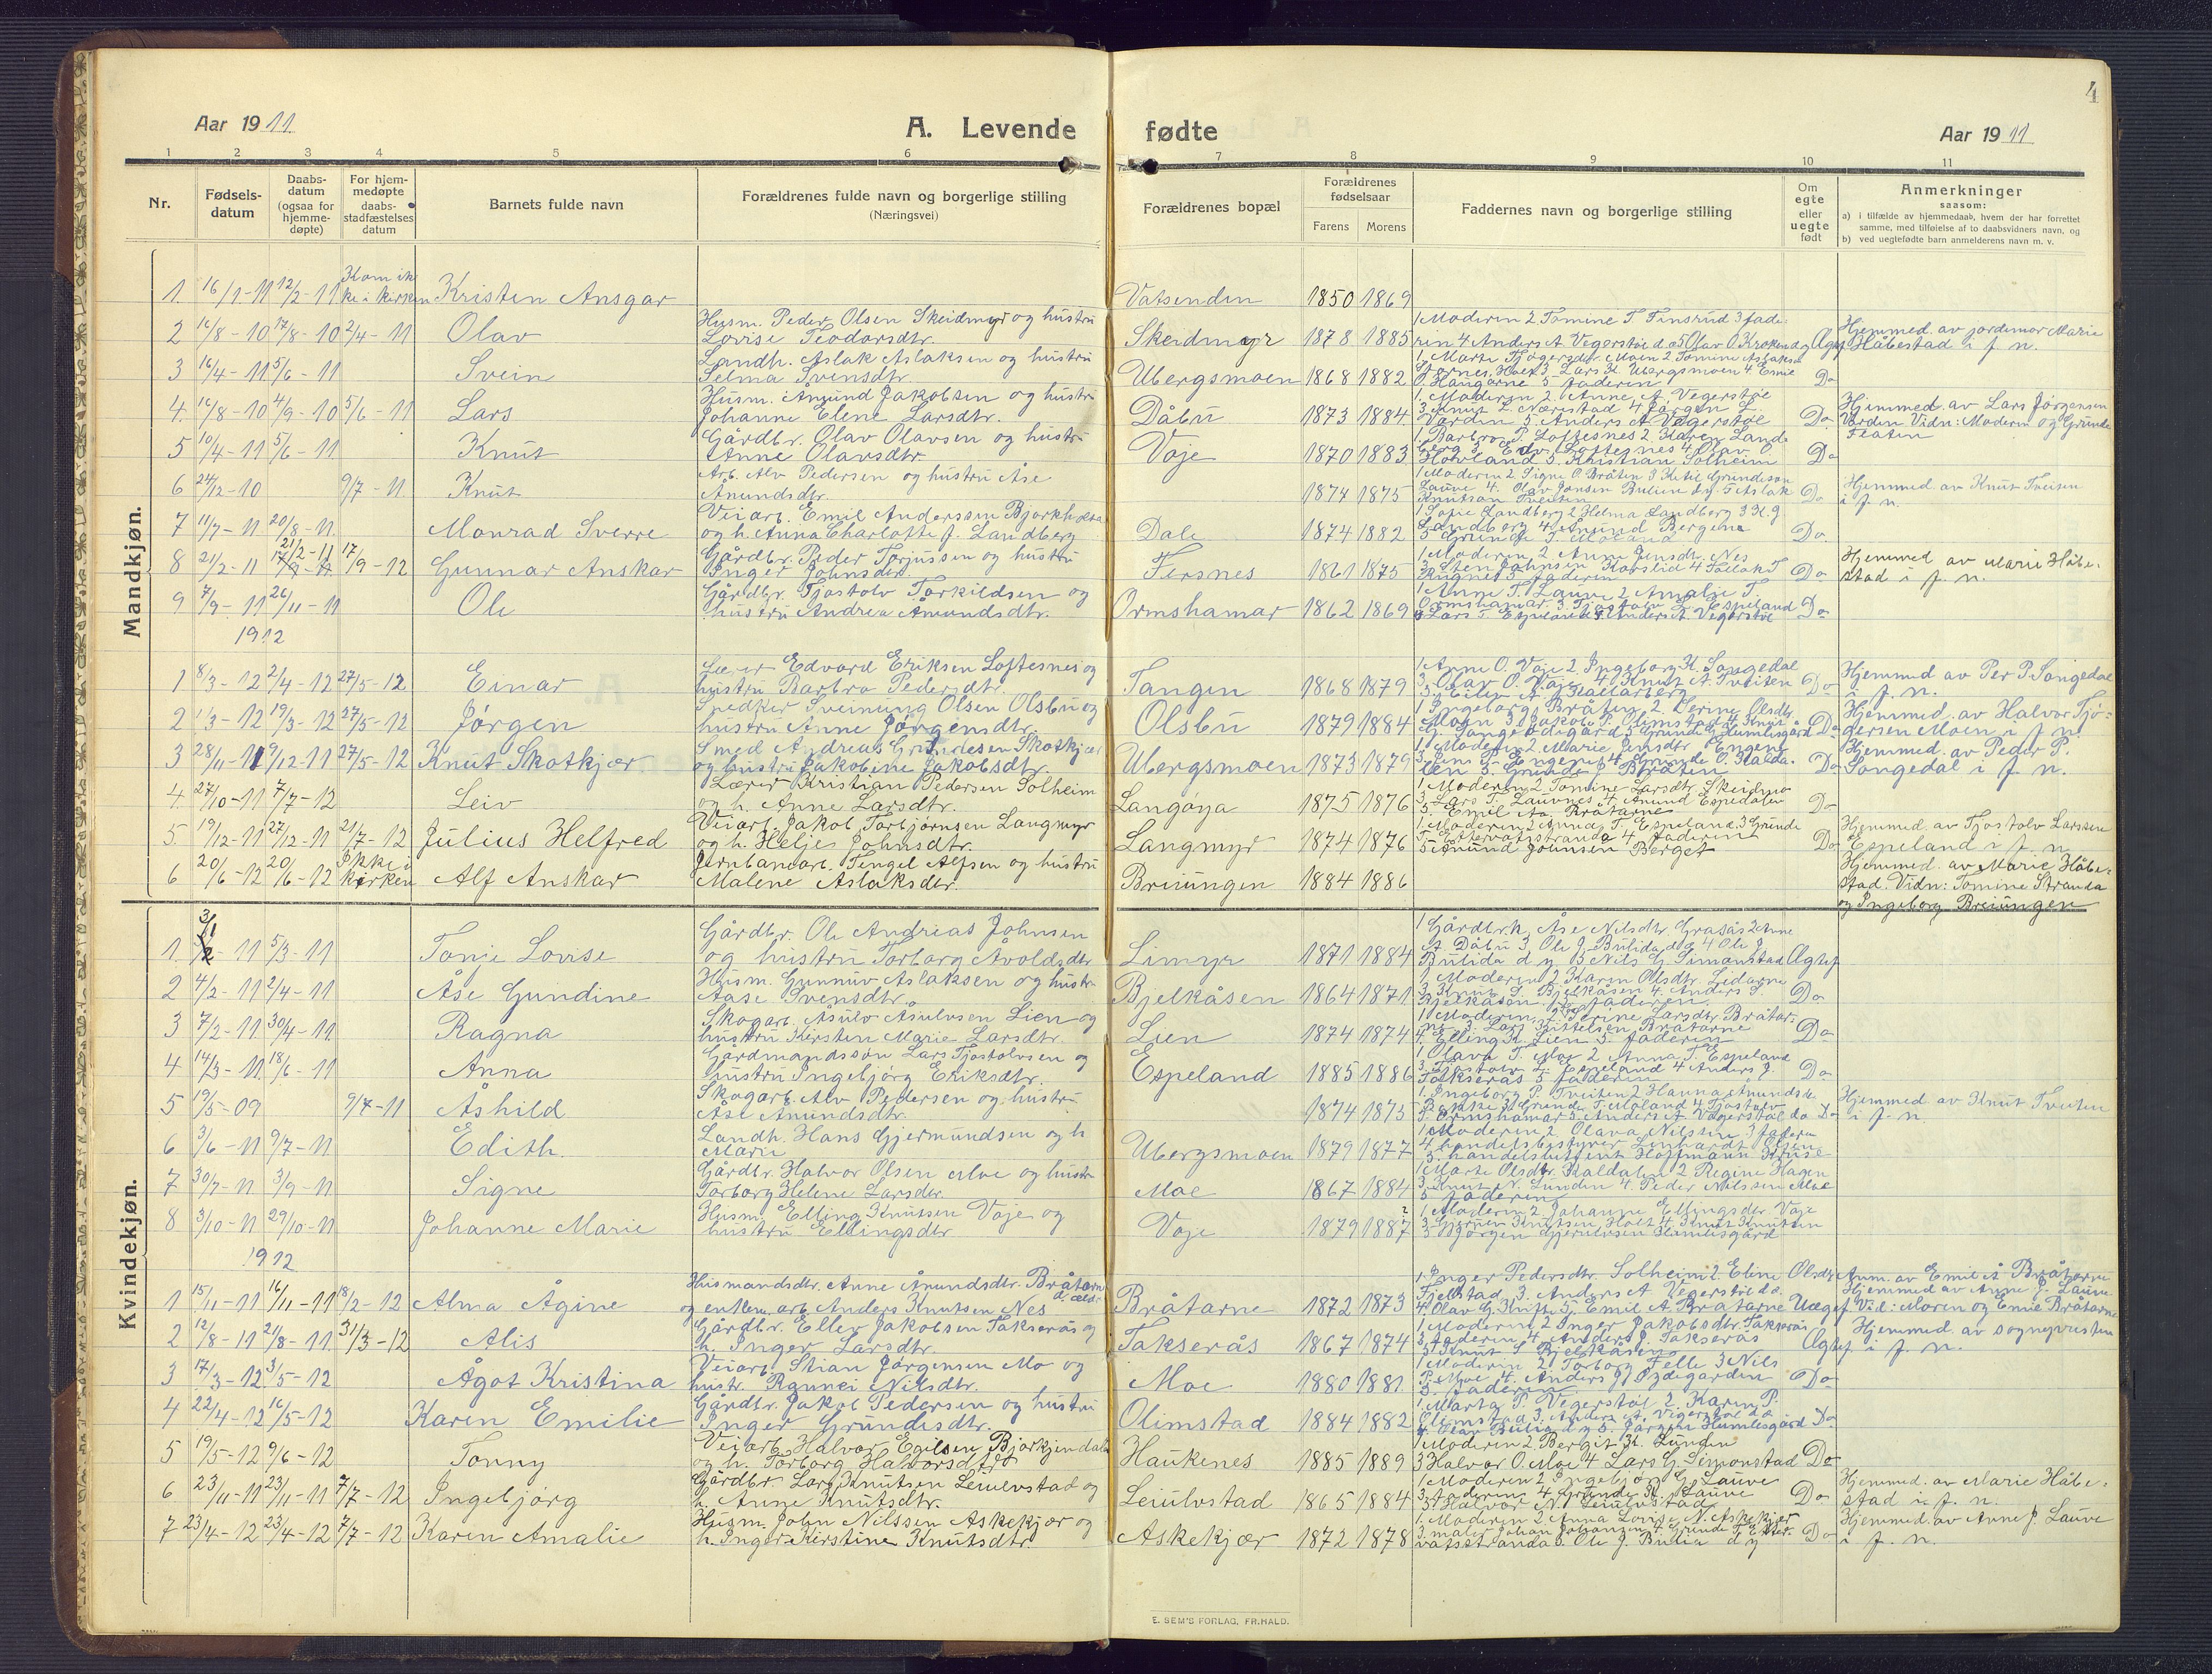 4
Aar 1911
A. Levende
fødte
Aar 1911
1 2 3 4 5 6 7 8 9 10 11
Nr.
Fødselsdatum
Daabsdatum (ogsaa for hjemmedøpte)
For hjemmedøpte daabsstadfæstelses datum
Barnets fulde navn
Forældrenes fulde navn og borgerlige stilling
(Næringsvei)
Forældrenes bopæl
Forældrenes fødselsaar
Farens Morens
Faddernes navn og borgerlige stilling
Om egte eller uegte født
Anmerkninger
saasom:
a) i tilfælde av hjemmedaab, hvem der har forrettet samme, med tilføielse af to daabsvidners navn, og
b) ved uegtefødte barn anmelderens navn m. v.
Mandkjøn.
1 16/1-11 12/2-11 Kom ikke i kirken Kristen Ansgar Vatsenden 1850 1869
2 16/8-10 17/8-10 2/4-11 Olav Husm. Peder Olsen Skeidmyr og hustru Lovise Teodorsdtr. Skeidmyr 1878 1885 1 Moderen 2 Tomine T. Finsrud 3 faderen 4 Anders A Vegerstøl d.æ 5 Olav O. Hjemmed. av jordemor Marie Håbestad i f. n.
3 16/4-11 5/6-11 Svein Landh. Aslak Aslaksen og hustru Selma Svensdtr. Ubergsmoen 1868 1882 5 faderen Do
4 16/8-10 4/9-10 5/6-11 Lars Husm. Anund Jakobsen og hustru Johanne Elene Larsdtr. Dåbu 1873 1884 1 Moderen 2 Anne A. Vegerstøl 3 Knut L. Nærestad 4 Jørgen L. Varden 5 Anders A Vegerstøl Do Hjemmed. av Lars Jørgensen Varden Vidn: Moderen og Grunde Flaten
5 10/4-11 5/6-11 Knut Gårdbr. Olav Olavsen og hustru Anne Olavsdtr. Voje 1870 1883 1 Barbro P. Loftesnes 2 Karen Landberg 3 Edv. Loftesnes 4 Olav O. Hovland 5 Kristian Solheim Do
6 24/12-10 9/7-11 Knut Arb. Alv Pedersen og hustru Åse Anundsdtr. 1874 1875 1 Moderen 2 Signe O. Bråten 3 Ketil Grundeson Lauve 4 Olav Jonsen Bulien d.y. 5 Aslak Knutson Tveiten Do Hjemmed. av Knut Tveiten i f. n.
7 11/7-11 20/8-11 Monrad Sverre Veiarb. Emil Anderssen Bjorkholta og h. Anna Charlotte J. Landberg Dale 1874 1882 1 Sofie Landberg 2 Helma Landberg 3 K. g. Landberg 4 Anund Bergene Do.
8 21/2-11 21/2-11 17/9-12 Gunnar Anskar Gårdbr. Peder Torjussen og hustru Inger Johnsdtr. Fersnes 1861 1875 1 Moderen 2 Anne Jensdtr. Nes 3 Sten Johnsen Kårslid 4 Tellak T. 5 faderen Do Hjemmed av Marie Håbestad i f. n.
9 7/9-11 26/11-11 Ole Gårdbr. Tjostolv Torkildsen og hustru Andrea Amundsdtr. Ormshamar 1862 1869 1 Anne T. Lauve 2 Amalie T. Ormshamar 3 Tjostolv L. Espeland 4 Lars T. Espeland 5 Anders A. Vegerstøl Do
1912
1 8/3-12 2/4-12 27/5-12 Einar Lærer Edvard Eriksen Loftesnes og hustru Barbro Pedersdtr. Tangen 1868 1879 1 Anne O. Voje 2 Ingeborg K. Songedal 3 Olav O. Voje 4 Knut A. Tveiten Do Hjemmed av Per P. Songedal i f. n.
2 1/3-12 19/3-12 27/5-12 Jørgen Snedker Sveinung Olsen Olsbu og hustru Anne Jørgensdtr. Olsbu 1879 1884 1 Ingeborg Bråten 2 Serine Olsdtr. Moen 3 Jakob P. Olimstad 4 Knut G. Songe 5 Grunde G Humlesgård Do Hjemmed. av Halvor Tjøgersen Moen i f. n.
3 28/11-11 9/12-11 27/5-12 Knut Skotkjær Smed Andreas Grundesen Skotkjær og hustru Jakobine Jakobsdtr. Ubergsmoen 1873 1879 1 Moderen 2 Marie Jensdtr. Engene 3 Jens T. Engene 4 Grunde O. Haldalen 5 Grunde J. Bråten Do Hjemmed. av Peder P. Songedal i f. n.
4 27/10-11 7/7-12 Leiv Lærer Kristian Pedersen Solheim og h. Anne Larsdtr. Langøya 1875 1876 1 Moderen 2 Tomine Larsdtr. Skeidmo 3 Lars T. Lauvnes 4 Anund Espedalen 5 Emil A. Bråtarne Do
5 19/12-11 27/12-11 21/7-12 Julius Helfred Veiarb. Jakob Torbjørnsen Langmyr og h. Helje Johnsdtr. Langmyr 1874 1876 1 Moderen 2 Anna T. Espeland 3 Grunde T. Ettervatsstranda 4 faderen 5 Anund Johnsen Berget Do Hjemmed. av Tjostolv Larssen Espeland i f. n.
6 20/6-12 20/6-12 Ikke i kirken Alf Anskar Jernbanearb. Tengel Alfsen og hustru Malene Aslaksdtr. Breiungen 1884 1886 Hjemmed. av Marie Håbestad. Vidn: Tomine Stranda og Ingeborg Breiungen
Kvindekjøn.
1 3/1-11 5/3-11 Tonje Lovise Gårdbr. Ole Andreas Johnsen og hustru Torborg Avoldsdtr. Limyr 1871 1884 1 Gårdbr.h. Åse Nilsdtr. Grasås 2 Anne A. Dåbu 3 Ole J. Bulida d.æ 4 Ole J. Bulida d y. 5 Nils G. Simonstad
2 4/2-11 2/4-11 Åse Gundine Husm. Gunnuv Aslaksen og hustr. Aase Svensdtr. Bjelkåsen 1864 1871 1 Moderen 2 Karen Olsdtr. Lidarne 3 Knut S. Bjelkåsen 4 Anders S. Bjelkåsen 5 faderen Do
3 7/2-11 30/4-11 Ragna Skogarb. Åsulv Åsulvsen Lien og hustru Kirsten Marie Larsdtr. Lien 1874 1874 1 Moderen 2 Serine Larsdtr. Bråtarne 3 Lars Kittelsen Bråtarne 4 Elling K. Lien 5 faderen Do
4 14/3-11 18/6-11 Anna Gårdmandssøn Lars Tjostolvsen og hustru Ingebjørg Eriksdtr. Espeland 1885 1886 1 Olava T. Moe 2 Anna T. Espeland 3 Tjostolv L. Espeland 4 Anders J. Takserås 5 faderen Do
5 19/5-09 9/7-11 Åshild Skogarb. Alv Pedersen og hustru Åse Anundsdtr. 1874 1875 1 Ingeborg P. Tveiten 2 Hanna Amundsdtr. 3 Grunde T. Moland 4 Tjostolv T. Ormshamar 5 Anders A. Vegerstøl Do Hjemmed av Knut Tveiten i f. n.
6 3/6-11 9/7-11 Edith. Landh. Hans Gjermundsen og h Marie Ubergsmoen 1879 1877 1 Moderen 2 Olava Nilsson 3 faderen 4 handelsbestyrer Linhardt Olsen 5 handelsbetjent Hoffmann Kruse
7 30/7-11 3/9-11 Signe Gårdbr. Halvor Olsen Moe og hustr. Torborg Helene Larsdtr. Moe 1867 1884 1 Marte Olsdtr. Haldalen 2 Regine Hagen 3 Knut N. Lunden 4 Peder Nilssen Moe 5 faderen
8 3/10-11 29/10-11 Johanne Marie Husm. Elling Knutsen Voje og hustru Ellingsdtr. Voje 1879 1887 ? 1 Moderen 2 Johanne Ellingsdtr Voje 3 Gjeruv Knutsen Holt 4 Knut Knutsen 5 Jørgen Gjerulvsen Humlesgård
1912
1 15/11-11 16/11-11 18/2-12 Alma Agine Husmandsdtr. Anne Anundsdtr. Bråtarne d. ældr. og enkem. arb. Anders Knutsen Nes Bråtarne 1872 1873 1 Inger Pedersdtr. Solheim 2 Eline Olsdtr. Fjellstad 3 Anders A Vegerstøl d.æ. 4 Olav G. 5 Emil A Bråtarne Uægf. Anm. av Emil A Bråtarne Hjemmed av Anne J. Lauve Vid: Maren og Emil Bråtarne
2 12/8-11 21/8-11 31/3-12 Alis Gårdbr. Ellev Jakobsen Takserås og h. Inger Larsdtr. Takserås 1867 1874 1 Moderen 2 Inger Jakobsdtr. Takserås 3 faderen 4 Anders J. Takserås 5 Knut S Bjelkåsen Hjemmed. av sogneprusten i f. n.
3 17/3-12 3/5-12 Ågot Kristina Veiarb. Stian Jørgensen Mo og hustr. Rannei Nilsdtr. Moe 1880 1881 1 Moderen 2 Torborg Felle 3 Nils P. Moe 4 Anders J Øydegarden 5 faderen Do
4 22/4-12 16/5-12 Karen Emilie Gårdbr. Jakob Pedersen og hustru Inger Grundesdtr. Olimstad 1884 1882 1 Marta P. Vegerstøl 2 Karen P. Olimstad 3 Anders A. Vegerstøl d.æ 4 Olav Bulia d y 5 Jørgen Humlesgård Do
5 19/5-12 9/6-12 Tonny Veiarb Halvor Egilsen Bjorkjendalen og h. Torborg Halvorsdtr. Haukenes 1885 1889 1 Moderen 2 Bergit K. Lunden 3 Halvor O. Moe 4 Lars G. Simonstad Do
6 23/11-11 23/11-11 7/7-12 Ingebjørg Gårdbr. Lars Knutsen Leiulvstad og h. Anne Knutsdtr. Leiulvstad 1865 1884 1 Moderen 2 Ingebjørg G. Lauve 3 faderen 4 Grunde K. Lauve 5 Halvor N. Leiulvstad Do Hjemmed. av Marie Håbestad i f. n.
7 23/4-12 23/4-12 7/7-12 Karen Amalie Husm. John Nilssen Askekjær og h. Inger Kirstine Knutsdtr. Askekjær 1872 1878 1 Moderen 2 Anna Lovise N. Askekjær 3 maler Johan Johansen 4 Grunde T. Ettervatsstranda 5 Ole J. Bulia d y Do Hjemmed. av Anne J. Lauve i f. n.
E. SEM'S FORLAG, FR.HALD.